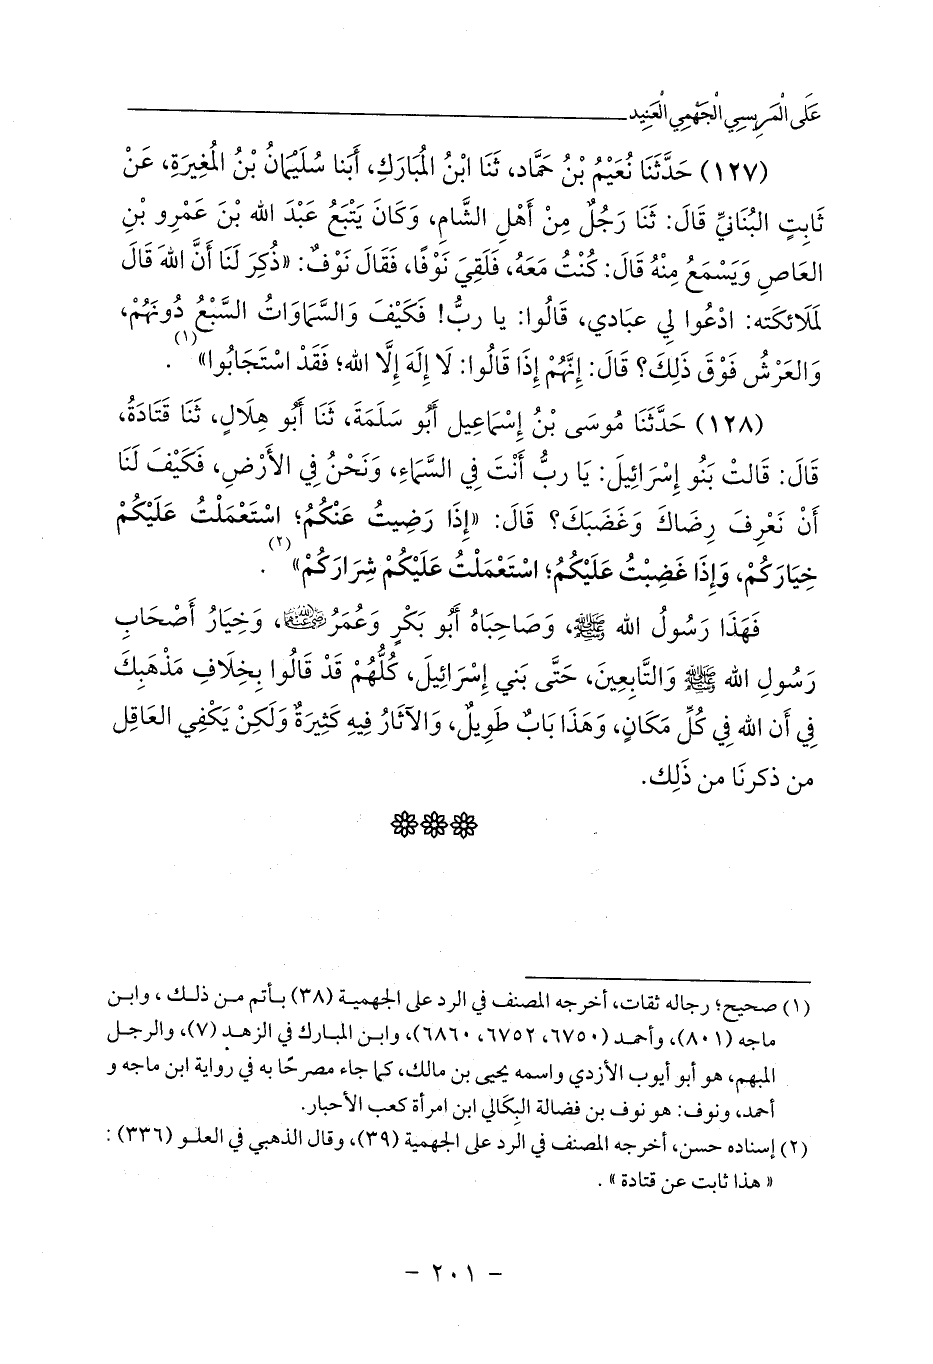 عَلَى الْمَرِيسِي الْجَهْمِي الْعَنِيد
(١٢٧) حَدَّثَنَا نُعَيْمُ بْنُ حَمَّاد، ثَنَا ابْنُ الْمُبَارَكِ، أَبَنا سُلَيْمَانُ بْنُ الْمُغِيرَةِ، عَنْ
ثَابِتٍ البُنَانِيِّ قَالَ: ثَنَا رَجُلٌ مِنْ أَهْلِ الشَّامِ، وَكَانَ يَتْبَعُ عَبْدَ الله بْنَ عَمْرِو بْنِ
العَاصِ وَيَسْمَعُ مِنْهُ قَالَ: كُنْتُ مَعَهُ، فَلَقِيَ نَوْفًا، فَقَالَ نَوْفٌ: «ذُكِرَ لَنَا أَنَّ اللهَ قَالَ
لمَلَائكَته: ادْعُوا لِي عبَادي، قَالُوا: يا ربُّ! فَكَيْفَ وَالسَّمَاوَاتُ السَّبْعُ دُونَهُمْ،
وَالعَرْشُ فَوْقَ ذَلِكَ؟ قَالَ: إِنَّهُمْ إِذَا قَالُوا: لَا إِلَهَ إِلَّا الله؛ فَقَدْ اسْتَجَابُوا»(١).
(١٢٨) حَدَّثَنَا مُوسَى بْنُ إِسْمَاعِيل أَبُو سَلَمَةَ، ثَنَا أَبُو هِلَالٍ، ثَنَا قَتَادَةُ،
قَالَ: قَالتْ بَنُو إِسْرَائِيلَ: يَا ربُّ أَنْتَ فِي السَّمَاءِ، وَنَحْنُ فِي الأَرْضِ، فَكَيْفَ لَنَا
أَنْ نَعْرِفَ رِضَاكَ وَغَضَبَكَ؟ قَالَ: «إِذَا رَضِيتُ عَنْكُمُ؛ اسْتَعْمَلْتُ عَلَيْكُمْ
خِيَارَكُمْ، وَإِذَا غَضِبْتُ عَلَيْكُمُ؛ اسْتَعْمَلْتُ عَلَيْكُمْ شِرَارَكُمْ»(٢).
فَهَذَا رَسُولُ الله ﷺ، وَصَاحِبَاهُ أَبُو بَكْرٍ وَعُمَرُ رضي الله عنهما، وَخِيَارُ أَصْحَابِ
رَسُولِ الله ﷺ وَالتَّابِعِينَ، حَتَّى بَنِي إِسْرَائِيلَ، كُلُّهُمْ قَدْ قَالُوا بِخِلَافِ مَذْهَبِكَ
فِي أَن الله فِي كُلِّ مَكَانٍ، وَهَذَا بَابٌ طَوِيلٌ، وَالآثَارُ فِيهِ كَثِيرَةٌ وَلَكِنْ يَكْفِي العَاقِل
من ذكرنَا من ذَلِك.
(١) صحيح؛ رجاله ثقات، أخرجه المصنف في الرد على الجهمية (٣٨) بأتم من ذلك، وابن
ماجه (٨٠١)، وأحمد (٦٧٥٠، ٦٧٥٢، ٦٨٦٠)، وابن المبارك في الزهد (٧)، والرجل
المبهم، هو أبو أيوب الأزدي واسمه يحيى بن مالك، كما جاء مصرحًا به في رواية ابن ماجه و
أحمد، ونوف: هو نوف بن فضالة البِكَالي ابن امرأة كعب الأحبار.
(٢) إسناده حسن، أخرجه المصنف في الرد على الجهمية (٣٩)، وقال الذهبي في العلو (٣٣٦):
« هذا ثابت عن قتادة ».
- ٢٠١ -